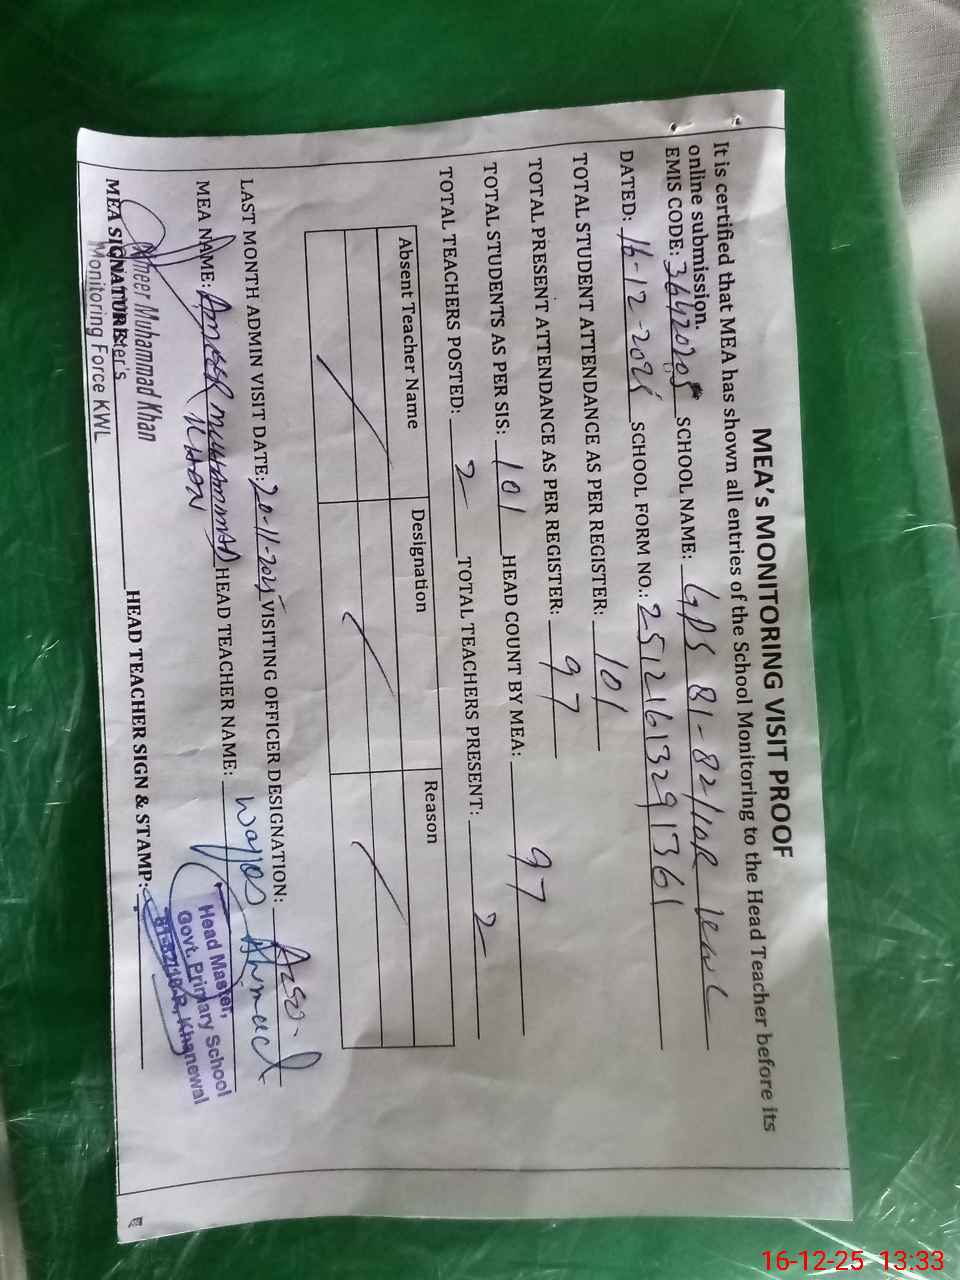 MEA's MONITORING VISIT PROOF
It is certified that MEA has shown all entries of the School Monitoring to the Head Teacher before its
online submission.
EMIS CODE: 36420205 SCHOOL NAME: GPS 81-82/10R
DATED: 16-12-2025 SCHOOL FORM NO.: 25121613291361
TOTAL STUDENT ATTENDANCE AS PER REGISTER: 101
TOTAL PRESENT ATTENDANCE AS PER REGISTER: 97
TOTAL STUDENTS AS PER SIS: 101 HEAD COUNT BY MEA: 97
TOTAL TEACHERS POSTED: 2 TOTAL TEACHERS PRESENT: 2
Absent Teacher Name Designation Reason
LAST MONTH ADMIN VISIT DATE: 20-11-2025 VISITING OFFICER DESIGNATION: AEO.
MEA NAME: AMEER MUHAMMAD KHAN HEAD TEACHER NAME: Waqas Ahmad
MEA SIGNATURE HEAD TEACHER SIGN & STAMP:
Ameer Muhammad Khan
Monitoring Force KWL
Head Master,
Govt. Primary School
81-82/10-R, Khanewal
16-12-25 13:33